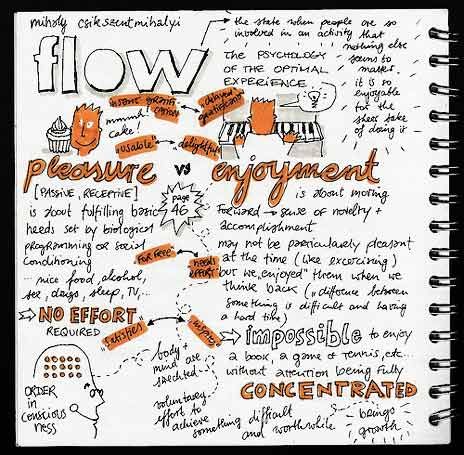 mihaly csikszentmihalyi
flow
the state when people are so
involved in an activity that
nothing else
seems to
matter.
it is so
enjoyable
for the
sheer sake
of doing it
THE PSYCHOLOGY
OF THE OPTIMAL
EXPERIENCE
mmmh!
cake!
instant gratifi-
cation
delayed
gratification
"usable"
delightful
pleasure vs enjoyment
[PASSIVE, RECEPTIVE]
is about fulfilling basic
needs set by biological
programming or social
conditioning
... nice food, alcohol,
sex, drugs, sleep, TV, ...
NO EFFORT
REQUIRED
page
46
is about moving
forward → sense of novelty +
accomplishment
may not be particularly pleasant
at the time (like excercising)
but we "enjoyed" them when we
think back ("difference between
something is difficult and having
a hard time)
FOR FREE
NEEDS
EFFORT
"satisfies"
impossible to enjoy
a book, a game of tennis, etc...
without attention being fully
CONCENTRATED
ORDER
in
conscious
ness
body +
mind are
stretched
voluntary
effort to
achieve
something difficult
and worthwhile
brings
growth